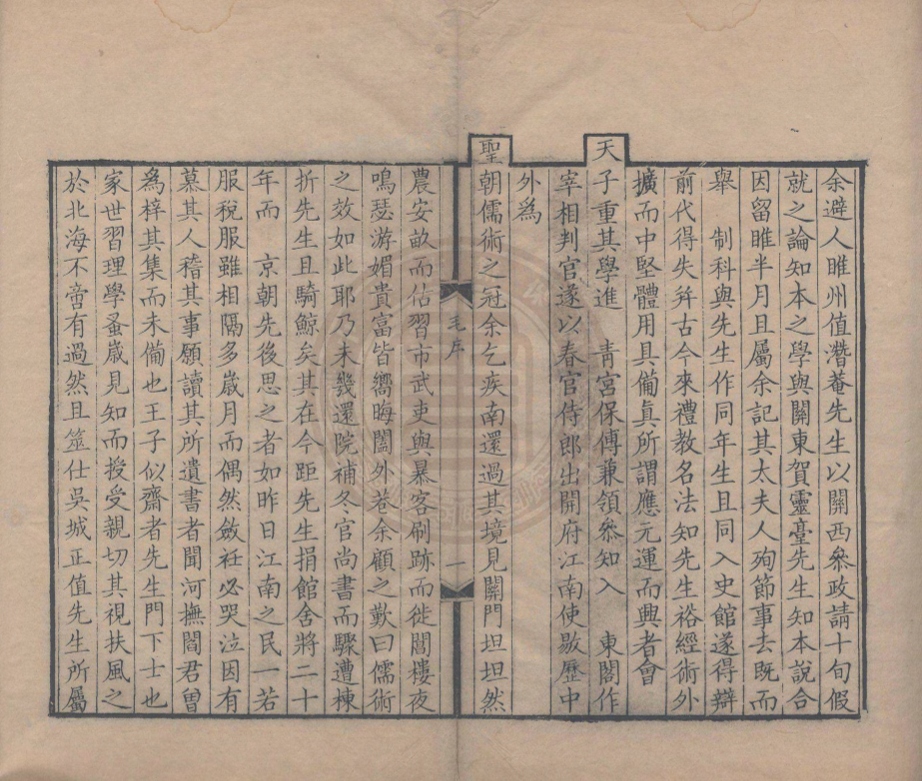 余避人睢州值潛菴先生以關西叅政請十旬假
就之論知本之學與關東賀靈臺先生知本說合
因留睢半月且屬余記其太夫人殉節事去既而
舉　制科與先生作同年生且同入史館遂得辯
前代得失并古今來禮教名法知先生裕經術外
擴而中堅體用具備眞所謂應元運而興者會
天子重其學進　青宮保傅兼領叅知入　東閣作
宰相判官遂以春官侍郎出開府江南使敭歷中
外爲
聖朝儒術之冠余乞疾南還過其境見關門坦坦然
毛序　一
農安畝而估習市武吏與暴客刷跡而徙閭樓夜
鳴瑟游媚貴富皆嚮晦闔外巷余顧之歎曰儒術
之效如此耶乃未幾還院補冬官尚書而驟遭棟
折先生且騎鯨矣其在今距先生捐館舍將二十
年而　京朝先後思之者如昨日江南之民一若
服稅服雖相隔多歲月而偶然斂衽必哭泣因有
慕其人稽其事願讀其所遺書者聞河撫閻君曾
爲梓其集而未備也王子似齋者先生門下士也
家世習理學蚤歲見知而授受親切其視扶風之
於北海不啻有過然且筮仕吳城正值先生所屬